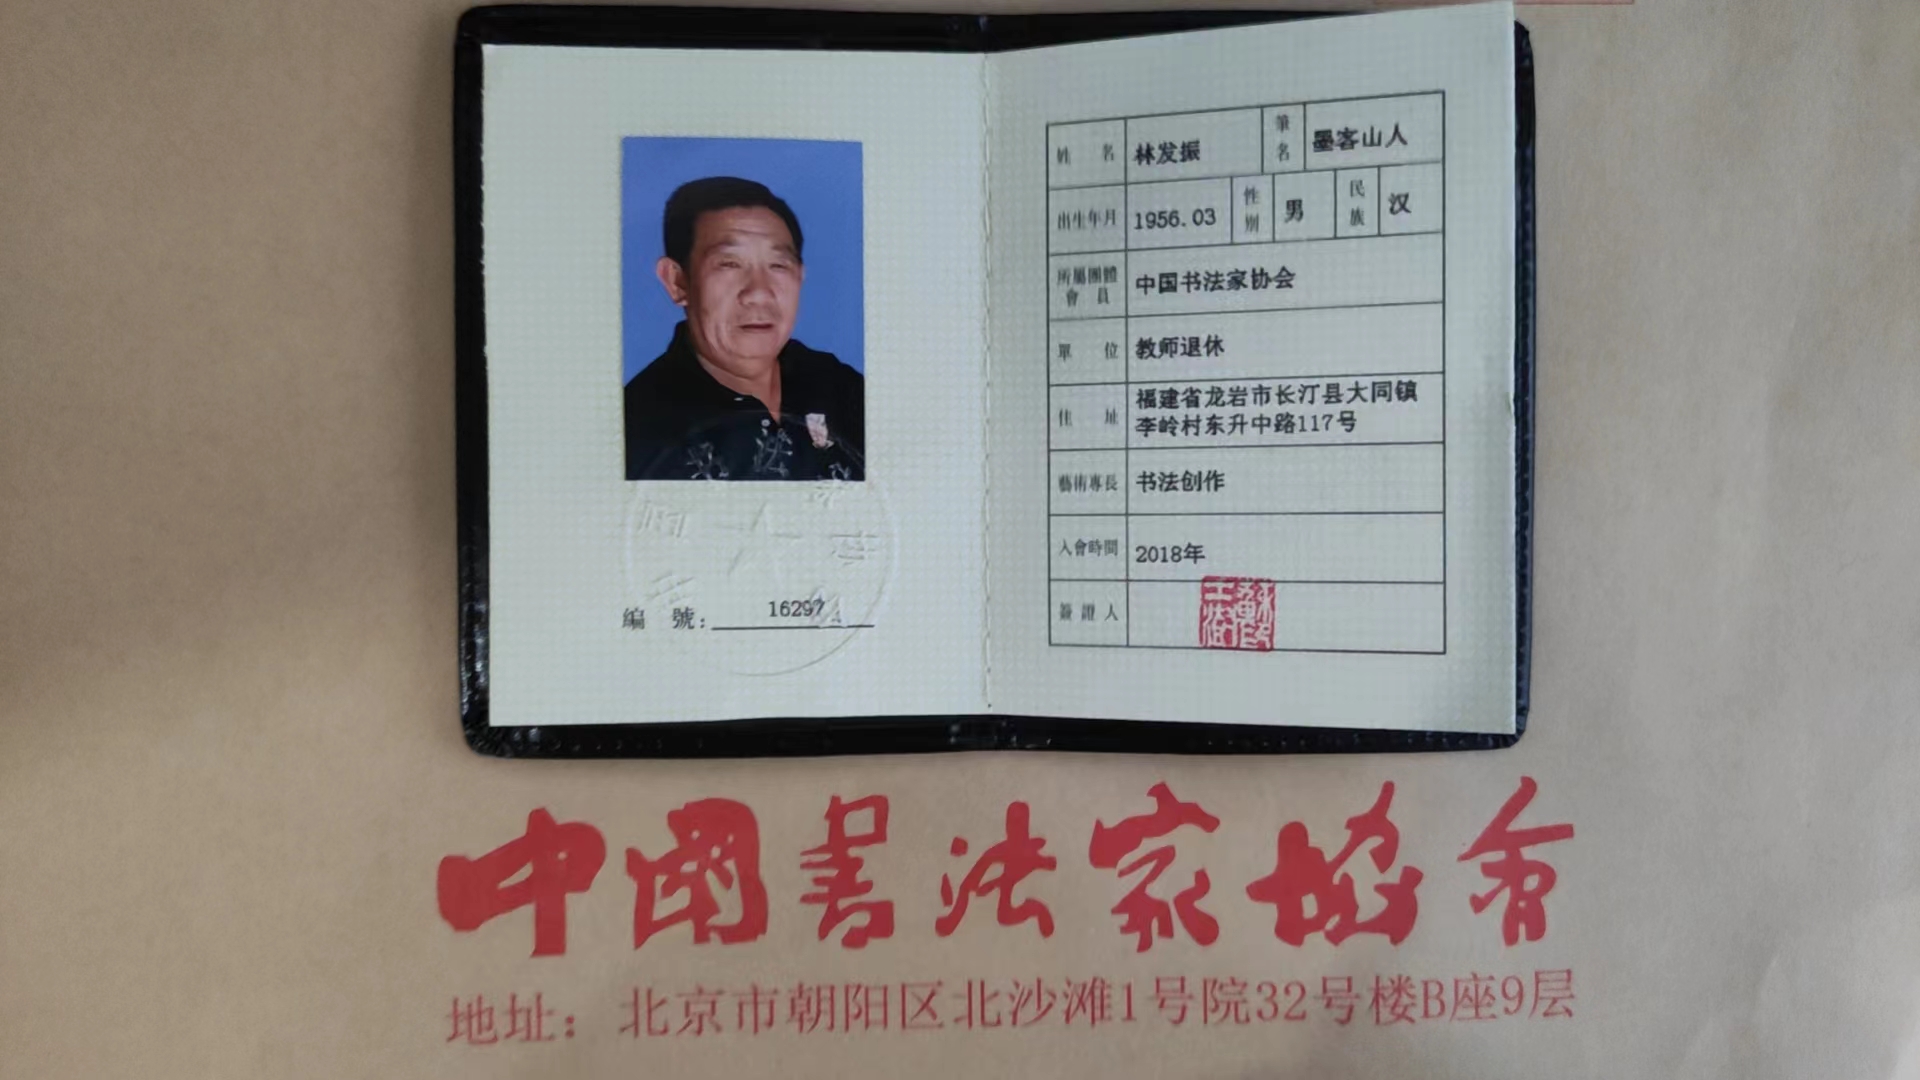 編 號: 16297
姓 名 林发振 筆名 墨客山人
出生年月 1956.03 性别 男 民族 汉
所屬團體會員 中国书法家协会
單 位 教师退休
住 址 福建省龙岩市长汀县大同镇
李岭村东升中路117号
藝術專長 书法创作
入會時間 2018年
簽證人
中國书法家協會
地址：北京市朝阳区北沙滩1号院32号楼B座9层